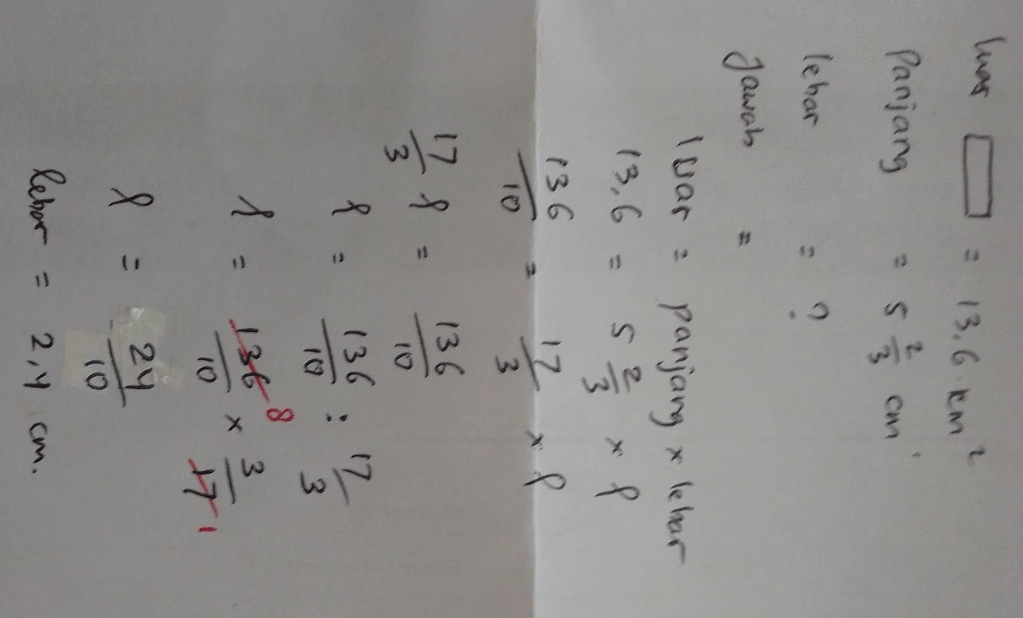 luas ▭ = 13,6 km²
Panjang = 5 2/3 cm
lebar = ?
Jawab =
luas = panjang x lebar
13,6 = 5 2/3 x l
136/10 = 17/3 x l
17/3 l = 136/10
l = 136/10 : 17/3
l = 136/10 x 3/17 8 1
l = 24/10
lebar = 2,4 cm.